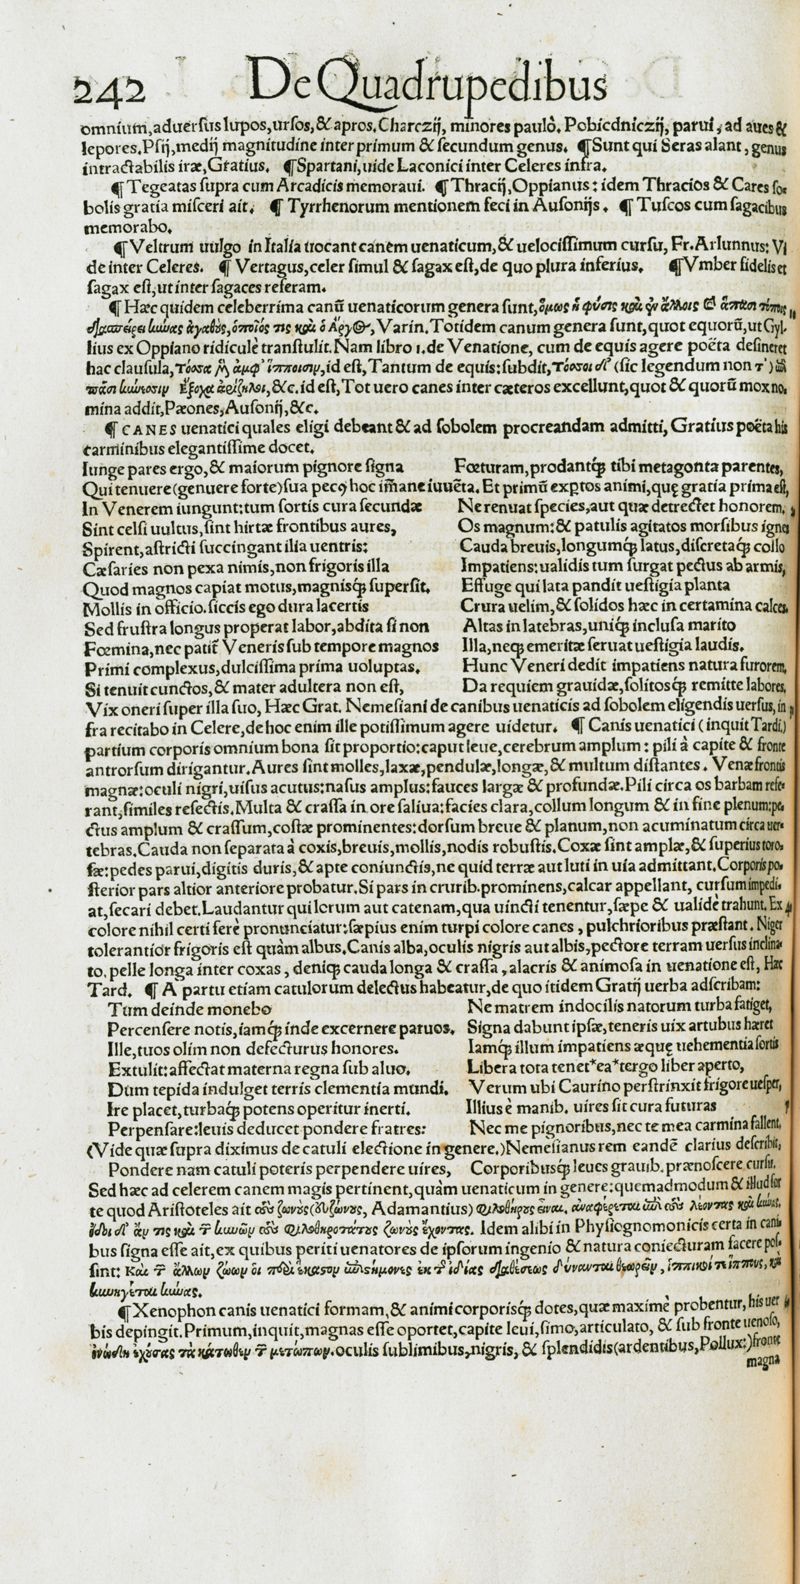 242 De Quadrupedibus
omnium, aduersus lupos, ursos, & apros. Charczij, minores paulò. Pobicdniczij, parui, ad aues &
lepores. Psij, medij magnitudine inter primum & secundum genus. ¶ Sunt qui Seras alant, genus
intractabilis iræ, Gratius. ¶ Spartani, uide Laconici inter Celeres infra.
¶ Tegeatas supra cum Arcadicis memoraui. ¶ Thracij, Oppianus: idem Thracios & Cares so-
bolis gratia misceri ait. ¶ Tyrrhenorum mentionem feci in Ausonijs. ¶ Tuscos cum sagacibus
memorabo.
¶ Veltrum uulgo in Italia uocant canem uenaticum, & uelocissimum cursu, Fr. Arlunnus: Vi
de inter Celeres. ¶ Vertagus, celer simul & sagax est, de quo plura inferius. ¶ Vmber fidelis et
sagax est, ut inter sagaces referam.
¶ Hæc quidem celeberrima canũ uenaticorum genera sunt, ὅμως ἡ φύσις καὶ ἐν ἄλλοις
κύνας ἀγαθὰς, ὁποῖός τις καὶ ὁ Ἀργος, Varin. Totidem canum genera sunt, quot equorũ, ut Gyl
lius ex Oppiano ridiculè transtulit. Nam libro 1. de Venatione, cum de equis agere poëta desineret
hac clausula, τόσσα μὲν ἀμφ' ἵπποισιν, id est, Tantum de equis: subdit, τόσσοι δ' (sic legendum non τ')
πᾶσι κύνεσσιν ἔξοχοι ἀρίζηλοι, &c. id est, Tot uero canes inter cæteros excellunt, quot & quorũ mox no-
mina addit, Pæones, Ausonij, &c.
¶ CANES uenatici quales eligi debeant & ad sobolem procreandam admitti, Gratius poëta his
carminibus elegantissime docet.
Iunge pares ergo, & maiorum pignore signa Fœturam, prodantq́ꝫ tibi metagonta parentes,
Qui tenuere (genuere forte) sua pecꝰ hoc im̃ane iuuẽta. Et primũ exp̱tos animi, quę gratia prima est,
In Venerem iungunt: tum sortis cura secundæ Ne renuat species, aut quæ detrectet honorem.
Sint celsi uultus, sint hirtæ frontibus aures, Os magnum: & patulis agitatos morsibus ignes
Spirent, astricti succingant ilia uentris: Cauda breuis, longumq́ꝫ latus, discretaq́ꝫ collo
Cæsaries non pexa nimis, non frigoris illa Impatiens: ualidis tum surgat pectus ab armis,
Quod magnos capiat motus, magnisq́ꝫ supersit. Effuge qui lata pandit uestigia planta
Mollis in officio. siccis ego dura lacertis Crura uelim, & solidos hæc in certamina calces.
Sed frustra longus properat labor, abdita si non Altas in latebras, uniq́ꝫ inclusa marito
Fœmina, nec patit̃ Veneris sub tempore magnos Illa, neq́ꝫ emeritæ seruat uestigia laudis.
Primi complexus, dulcissima prima uoluptas. Hunc Veneri dedit impatiens natura furorem,
Si tenuit cunctos, & mater adultera non est, Da requiem grauidæ, solitosq́ꝫ remitte labores,
Vix oneri super illa suo, Hæc Grat. Nemesiani de canibus uenaticis ad sobolem eligendis uersus, in
fra recitabo in Celere, de hoc enim ille potissimum agere uidetur. ¶ Canis uenatici (inquit Tardi.)
partium corporis omnium bona sit proportio: caput leue, cerebrum amplum: pili à capite & fronte
antrorsum dirigantur. Aures sint molles, laxæ, pendulæ, longæ, & multum distantes. Venæ frontis
magnæ: oculi nigri, uisus acutus: nasus amplus: fauces largæ & profundæ. Pili circa os barbam refe-
rant, similes resectis. Multa & crassa in ore saliua: facies clara, collum longum & in fine plenum: pe-
ctus amplum & crassum, costæ prominentes: dorsum breue & planum, non acuminatum circa uer-
tebras. Cauda non separata à coxis, breuis, mollis, nodis robustis. Coxæ sint amplæ, & superius toro-
sæ: pedes parui, digitis duris, & apte coniunctis, ne quid terræ aut luti in uia admittant. Corporis po-
sterior pars altior anteriore probatur. Si pars in crurib. prominens, calcar appellant, cursum impedi-
at, secari debet. Laudantur qui lorum aut catenam, qua uincti tenentur, sæpe & ualidè trahunt. Ex
colore nihil certi ferè pronunciatur: sæpius enim turpi colore canes, pulchrioribus præstant. Niger
tolerantior frigoris est quàm albus. Canis alba, oculis nigris aut albis, pectore terram uersus inclina-
to, pelle longa inter coxas, deniq́ꝫ cauda longa & crassa, alacris & animosa in uenatione est, Hæc
Tard. ¶ A partu etiam catulorum delectus habeatur, de quo itidem Gratij uerba adscribam:
Tum deinde monebo Ne matrem indocilis natorum turba fatiget,
Percensere notis, iamq́ꝫ inde excernere paruos. Signa dabunt ipsæ, teneris uix artubus hæret
Ille, tuos olim non defecturus honores. Iamq́ꝫ illum impatiens æquę uehementia sortis
Extulit: affectat materna regna sub aluo. Libera tota tenet*ea*tergo liber aperto,
Dum tepida indulget terris clementia mundi. Verum ubi Caurino perstrinxit frigore uesper,
Ire placet, turbaq́ꝫ potens operitur inerti. Illius è manib. uires sit cura futuras
Perpensare: leuis deducet pondere fratres: Nec me pignoribus, nec te mea carmina fallent.
(Vide quæ supra diximus de catuli electione in genere.) Nemesianus rem eandẽ clarius describit,
Pondere nam catuli poteris perpendere uires, Corporibusq́ꝫ leues grauib. prænoscere cursu.
Sed hæc ad celerem canem magis pertinent, quàm uenaticum in genere: quemadmodum & illud for
te quod Aristoteles ait τοὺς ζωνοὺς (εὐζώνους, Adamantius) φιλοθήρους εἶναι. ἀναφέρεται ἐπὶ τοὺς λέοντας καὶ κύνας.
ἴδοι δ' ἄν τις καὶ τῶν κυνῶν τοὺς φιλοθηροτάτους ζωνοὺς ἔχοντας. Idem alibi in Physiognomonicis certa in cani-
bus signa esse ait, ex quibus periti uenatores de ipsorum ingenio & natura coniecturam facere pos-
sint: Καὶ τῶν ἄλλων ζώων οἱ περὶ ἕκαστον ἐπιστήμονες ἐκ τῆς ἰδίας διαθέσεως δύνανται θεωρεῖν, ἱππικοί τε ἵππους, καὶ
κυνηγέται κύνας.
¶ Xenophon canis uenatici formam, & animi corporisq́ꝫ dotes, quæ maximè probentur, his uer
bis depingit. Primum, inquit, magnas esse oportet, capite leui, simo, articulato, & sub fronte uenoso,
ἰνώδη ἐχούσας τὰ κάτωθεν τῶν μετώπων. oculis sublimibus, nigris, & splendidis (ardentibus, Pollux:) fronte
magna